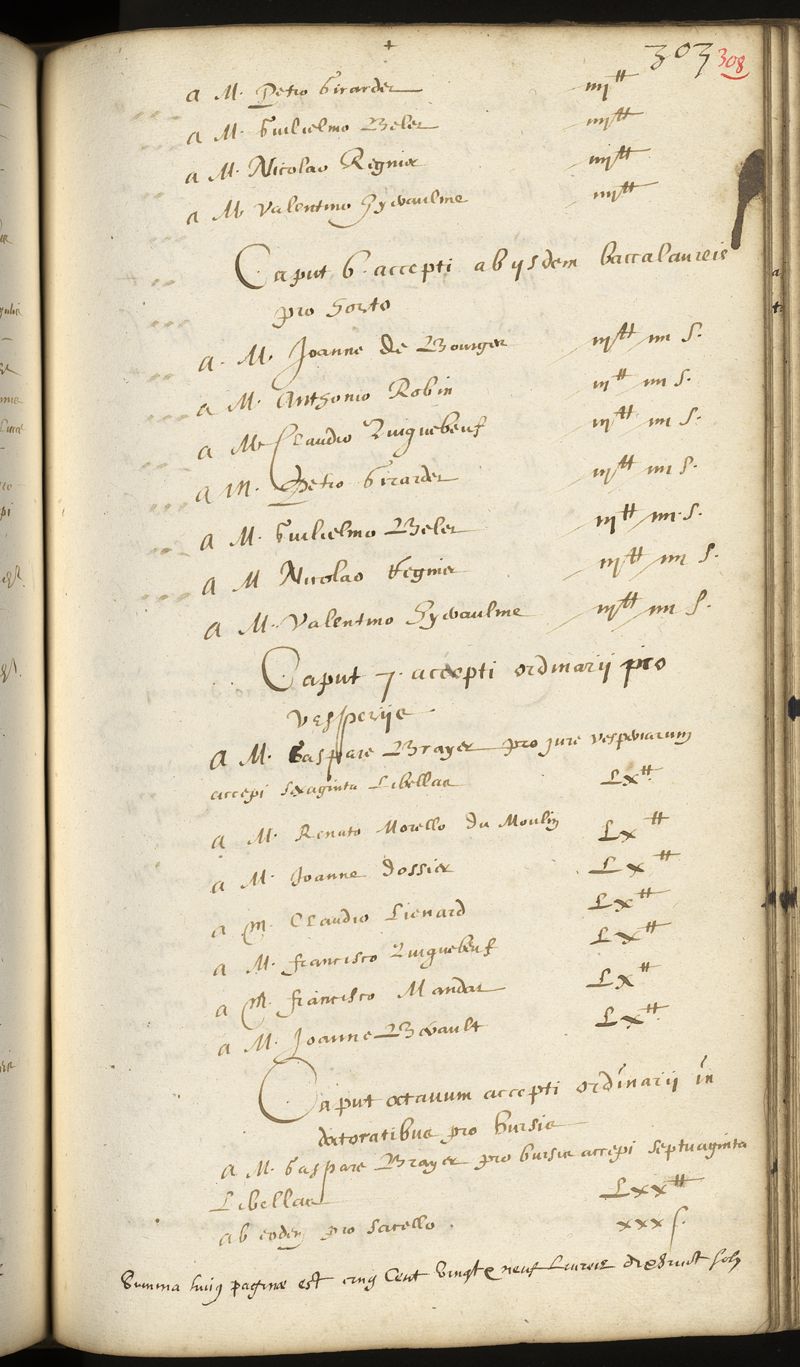 +
303 308
A M. Petro Girarder iiij ₶
A M. Guilielmo Beler iiij ₶
A M. Nicolao Regnier iiij ₶
A M. Valentino Hyevaulme iiij ₶
Caput 6. accepti ab ijsdem baccalaureis
pro horto
A. M. Joanne de Bourges iij ₶ iiii s.
A M. Anthonio Robin iij ₶ iiii s.
A M. Claudio Quiquebeuf iij ₶ iiii s.
A M. Petro Girarder iij ₶ iiii s.
A M. Guilielmo Beler iij ₶ iiii s.
A M Nicolao Regnier iij ₶ iiii s.
A M. Valentino Hyevaulme iij ₶ iiii s.
Caput 7. accepti ordinarij pro
vesperijs
A M. Gaspare Brayer pro jure vesperiarum
accepi sexaginta libellas Lx ₶
A M. Renato Morello du Moulin Lx ₶
A M. Joanne Dossier Lx ₶
A M. Claudio Lienard Lx ₶
A M. Francisco Quiquebeuf Lx ₶
A M. Francisco Mandat Lx ₶
A M. Joanne Bevault Lx ₶
Caput octavum accepti ordinarij in
doctoratibus pro bursis
A M. Gaspare Brayer pro bursis accepi septuaginta
Libellas Lxx ₶
ab eodem pro sacello. xxx s.
Summa huius paginæ est cinq Cent vingt & neuf Livres dixhuict solz